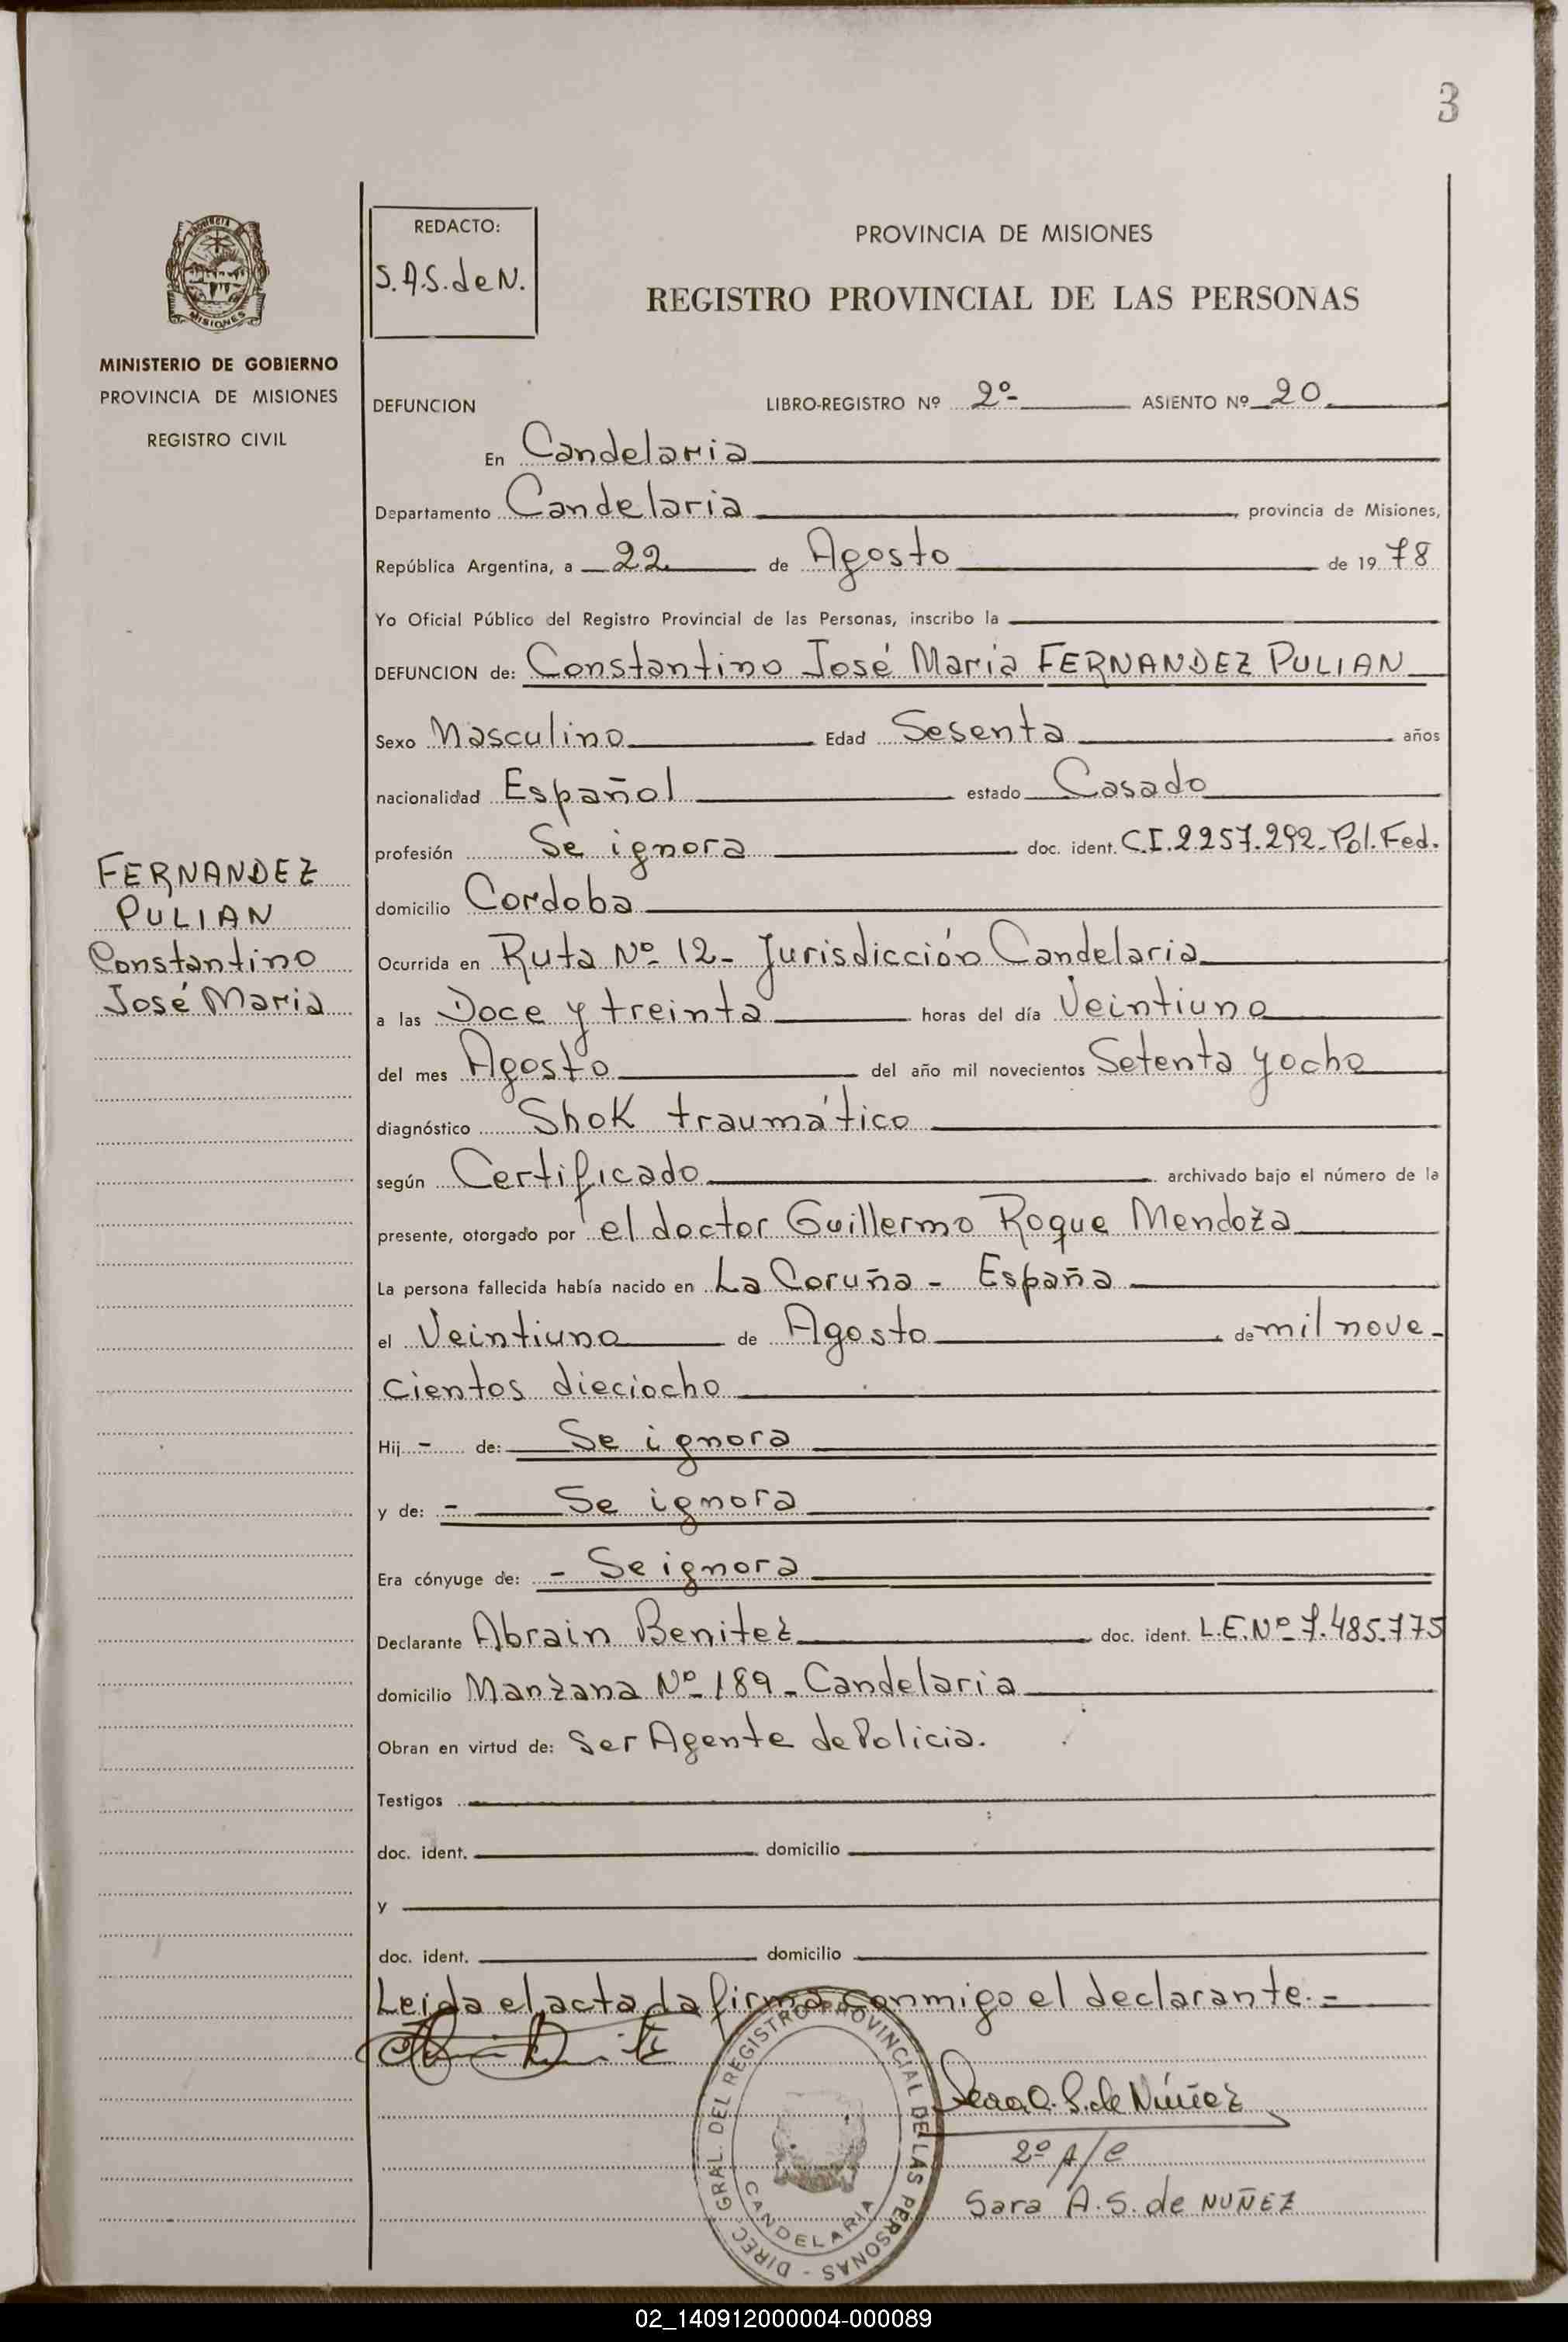 3
PROVINCIA DE MISIONES
MINISTERIO DE GOBIERNO
PROVINCIA DE MISIONES
REGISTRO CIVIL
FERNANDEZ
PULIAN
Constantino
José Maria
REDACTO:
S.A.S. de N.
PROVINCIA DE MISIONES
REGISTRO PROVINCIAL DE LAS PERSONAS
DEFUNCION LIBRO-REGISTRO Nº 2º- ASIENTO Nº 20
En Candelaria
Departamento Candelaria, provincia de Misiones,
República Argentina, a 22 de Agosto de 1978
Yo Oficial Público del Registro Provincial de las Personas, inscribo la
DEFUNCION de: Constantino José María FERNANDEZ PULIAN
Sexo Masculino Edad Sesenta años
nacionalidad Español estado Casado
profesión Se ignora doc. ident. C.I. 2.257.292- Pol. Fed.
domicilio Cordoba
Ocurrida en Ruta Nº 12- Jurisdicción Candelaria
a las Doce y treinta horas del día Veintiuno
del mes Agosto del año mil novecientos Setenta y ocho
diagnóstico Shok traumático
según Certificado archivado bajo el número de la
presente, otorgado por el doctor Guillermo Roque Mendoza
La persona fallecida había nacido en La Coruña - España
el Veintiuno de Agosto de mil nove-
cientos dieciocho
Hij - de: Se ignora
y de: - Se ignora
Era cónyuge de: - Se ignora
Declarante Abrain Benitez doc. ident. L.E. Nº 7.485.775
domicilio Manzana Nº 189 - Candelaria
Obran en virtud de: Ser Agente de Policia.
Testigos
doc. ident. domicilio
y
doc. ident. domicilio
Leida el acta la firma conmigo el declarante.-
DIREC. GRAL. DEL REGISTRO PROVINCIAL DE LAS PERSONAS -
CANDELARIA
Sara A. S. de Núñez
2º A/C
Sara A. S. de NUÑEZ
02_140912000004-000089